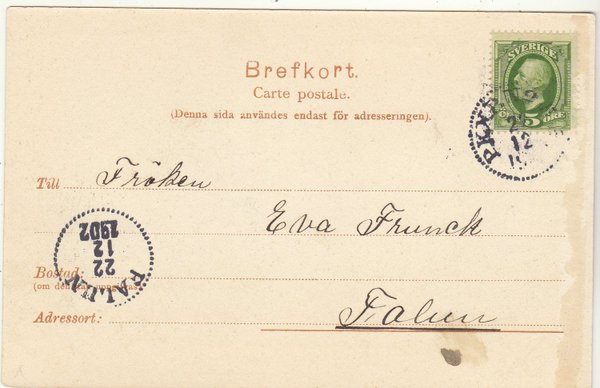 SVERIGE
5 ÖRE
Brefkort.
Carte postale.
(Denna sida användes endast för adresseringen).
PKXP
12
Till Fröken
Eva Frunck
FALUN
22
12
1902
Bostad:
(om den
Adressort: Falun